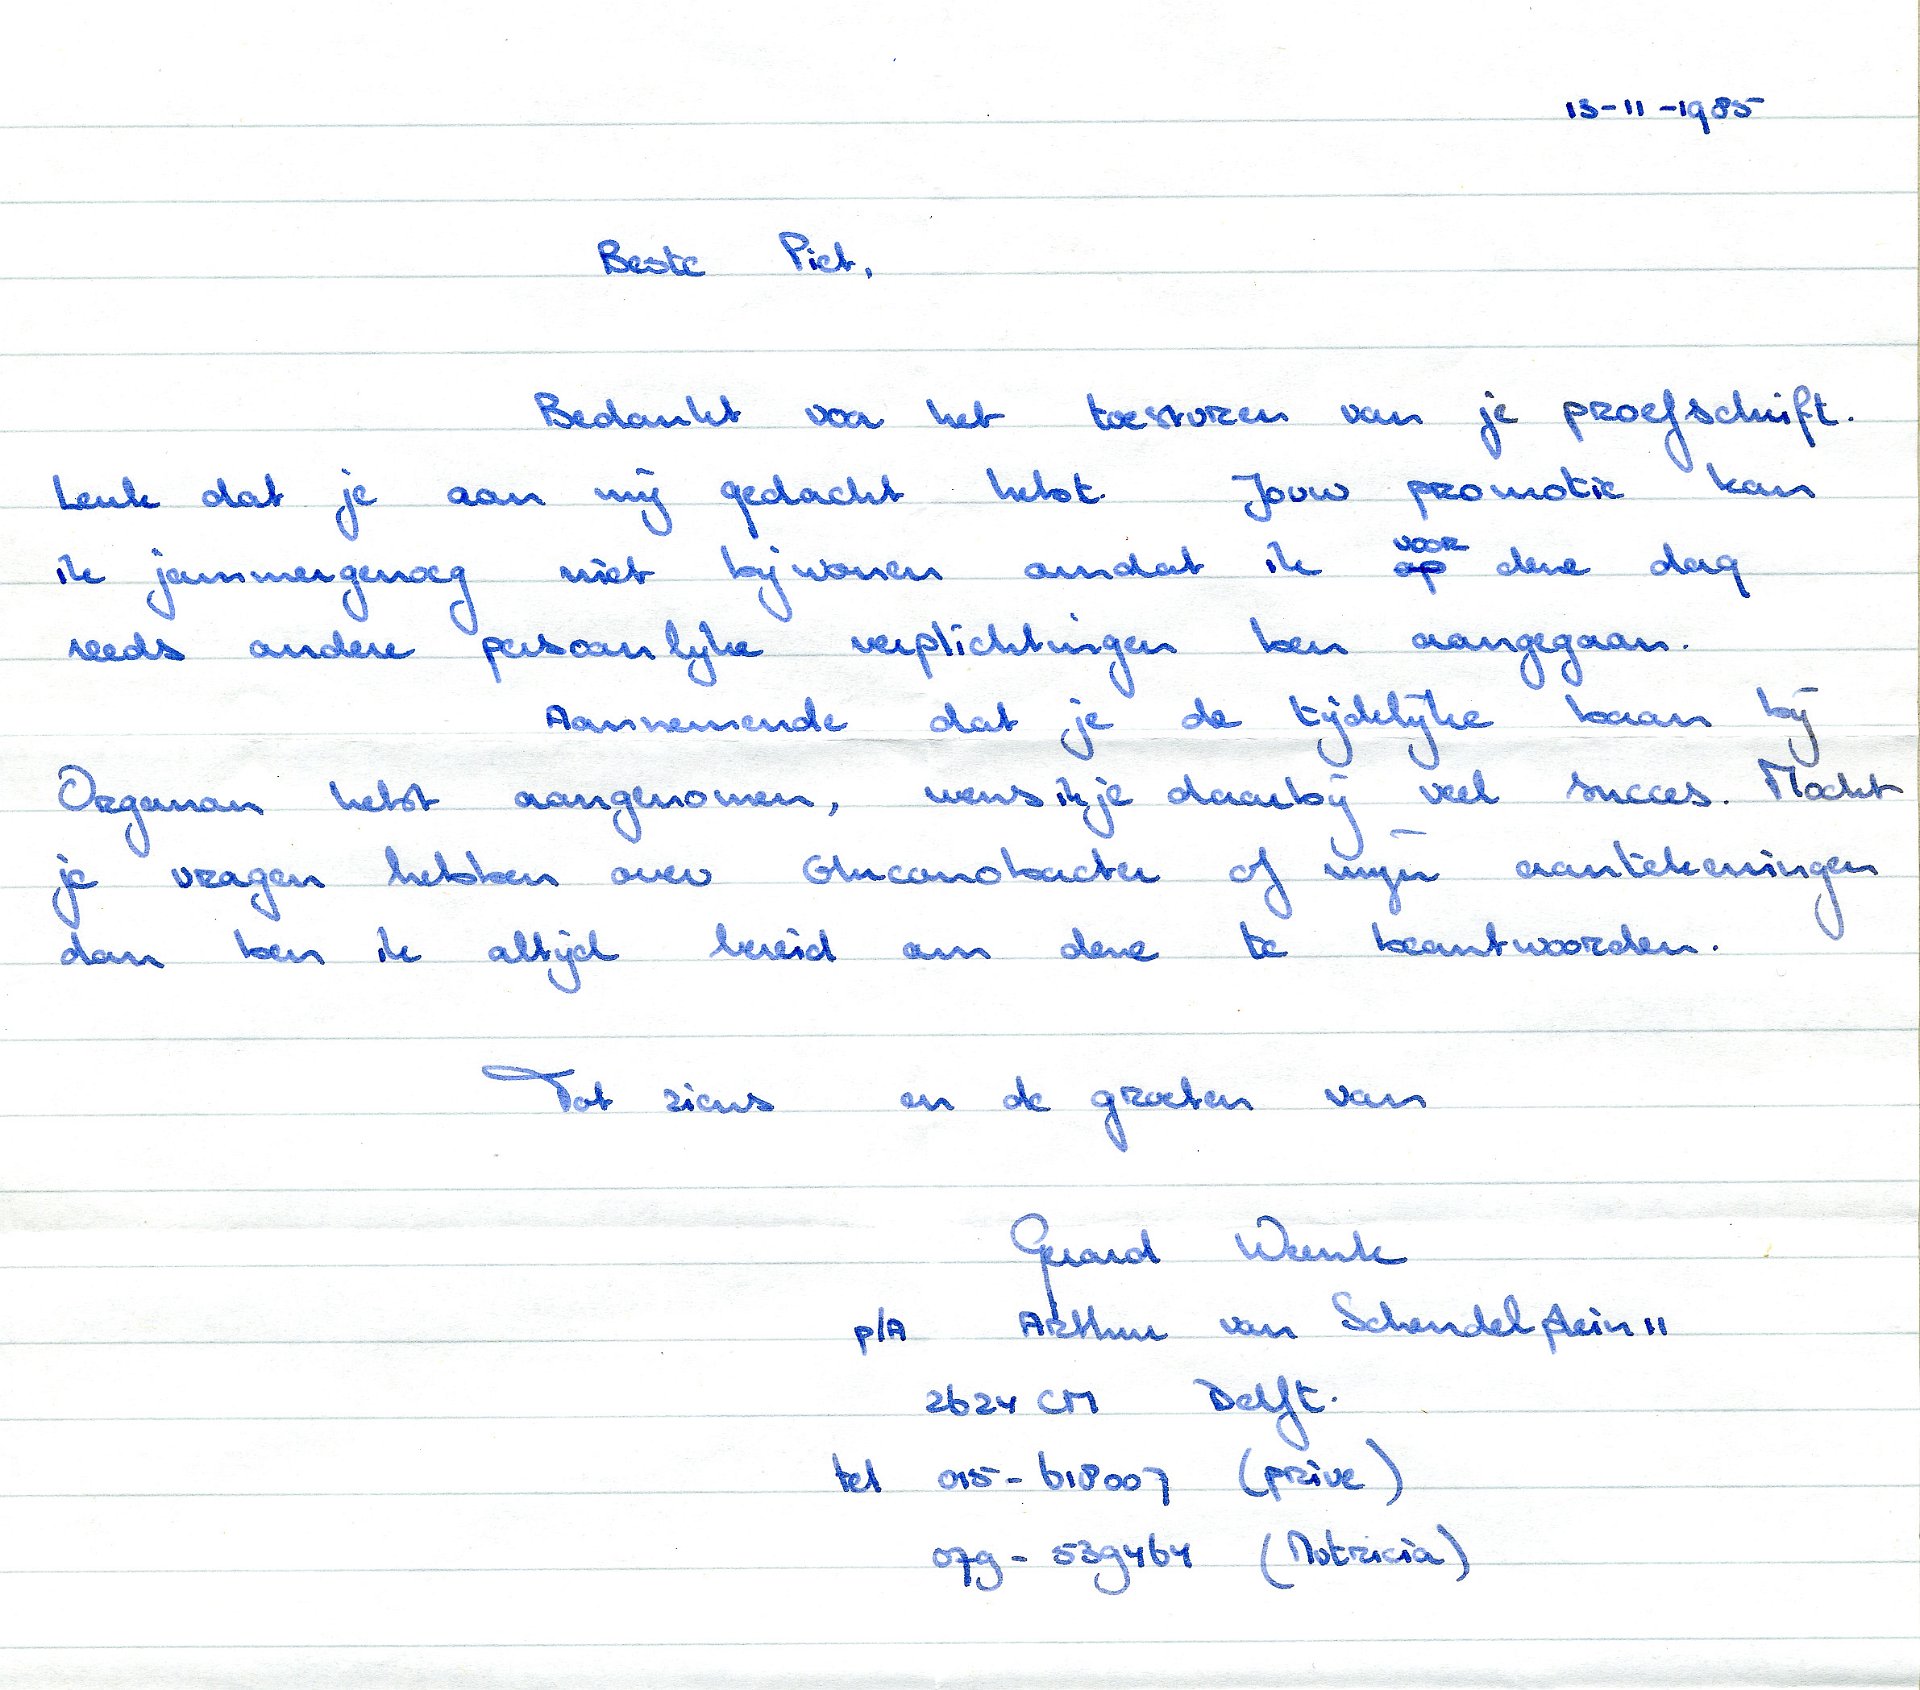 13-11-1985
Beste Piet,
Bedankt voor het toesturen van je proefschrift.
Leuk dat je aan mij gedacht hebt. Jouw promotie kan
ik jammergenoeg niet bijwonen omdat ik voor deze dag
reeds andere persoonlijke verplichtingen ben aangegaan.
Aannemende dat je de tijdelijke baan bij
Organon hebt aangenomen, wens ik je daarbij veel succes. Mocht
je vragen hebben over Gluconobacter of mijn aantekeningen
dan ben ik altijd bereid om deze te beantwoorden.
Tot ziens en de groeten van
Gerard Weenk
p/A Arthur van Schendelplein 11
2624 CM Delft.
tel 015-618007 (prive)
079-539464 (Nutricia)